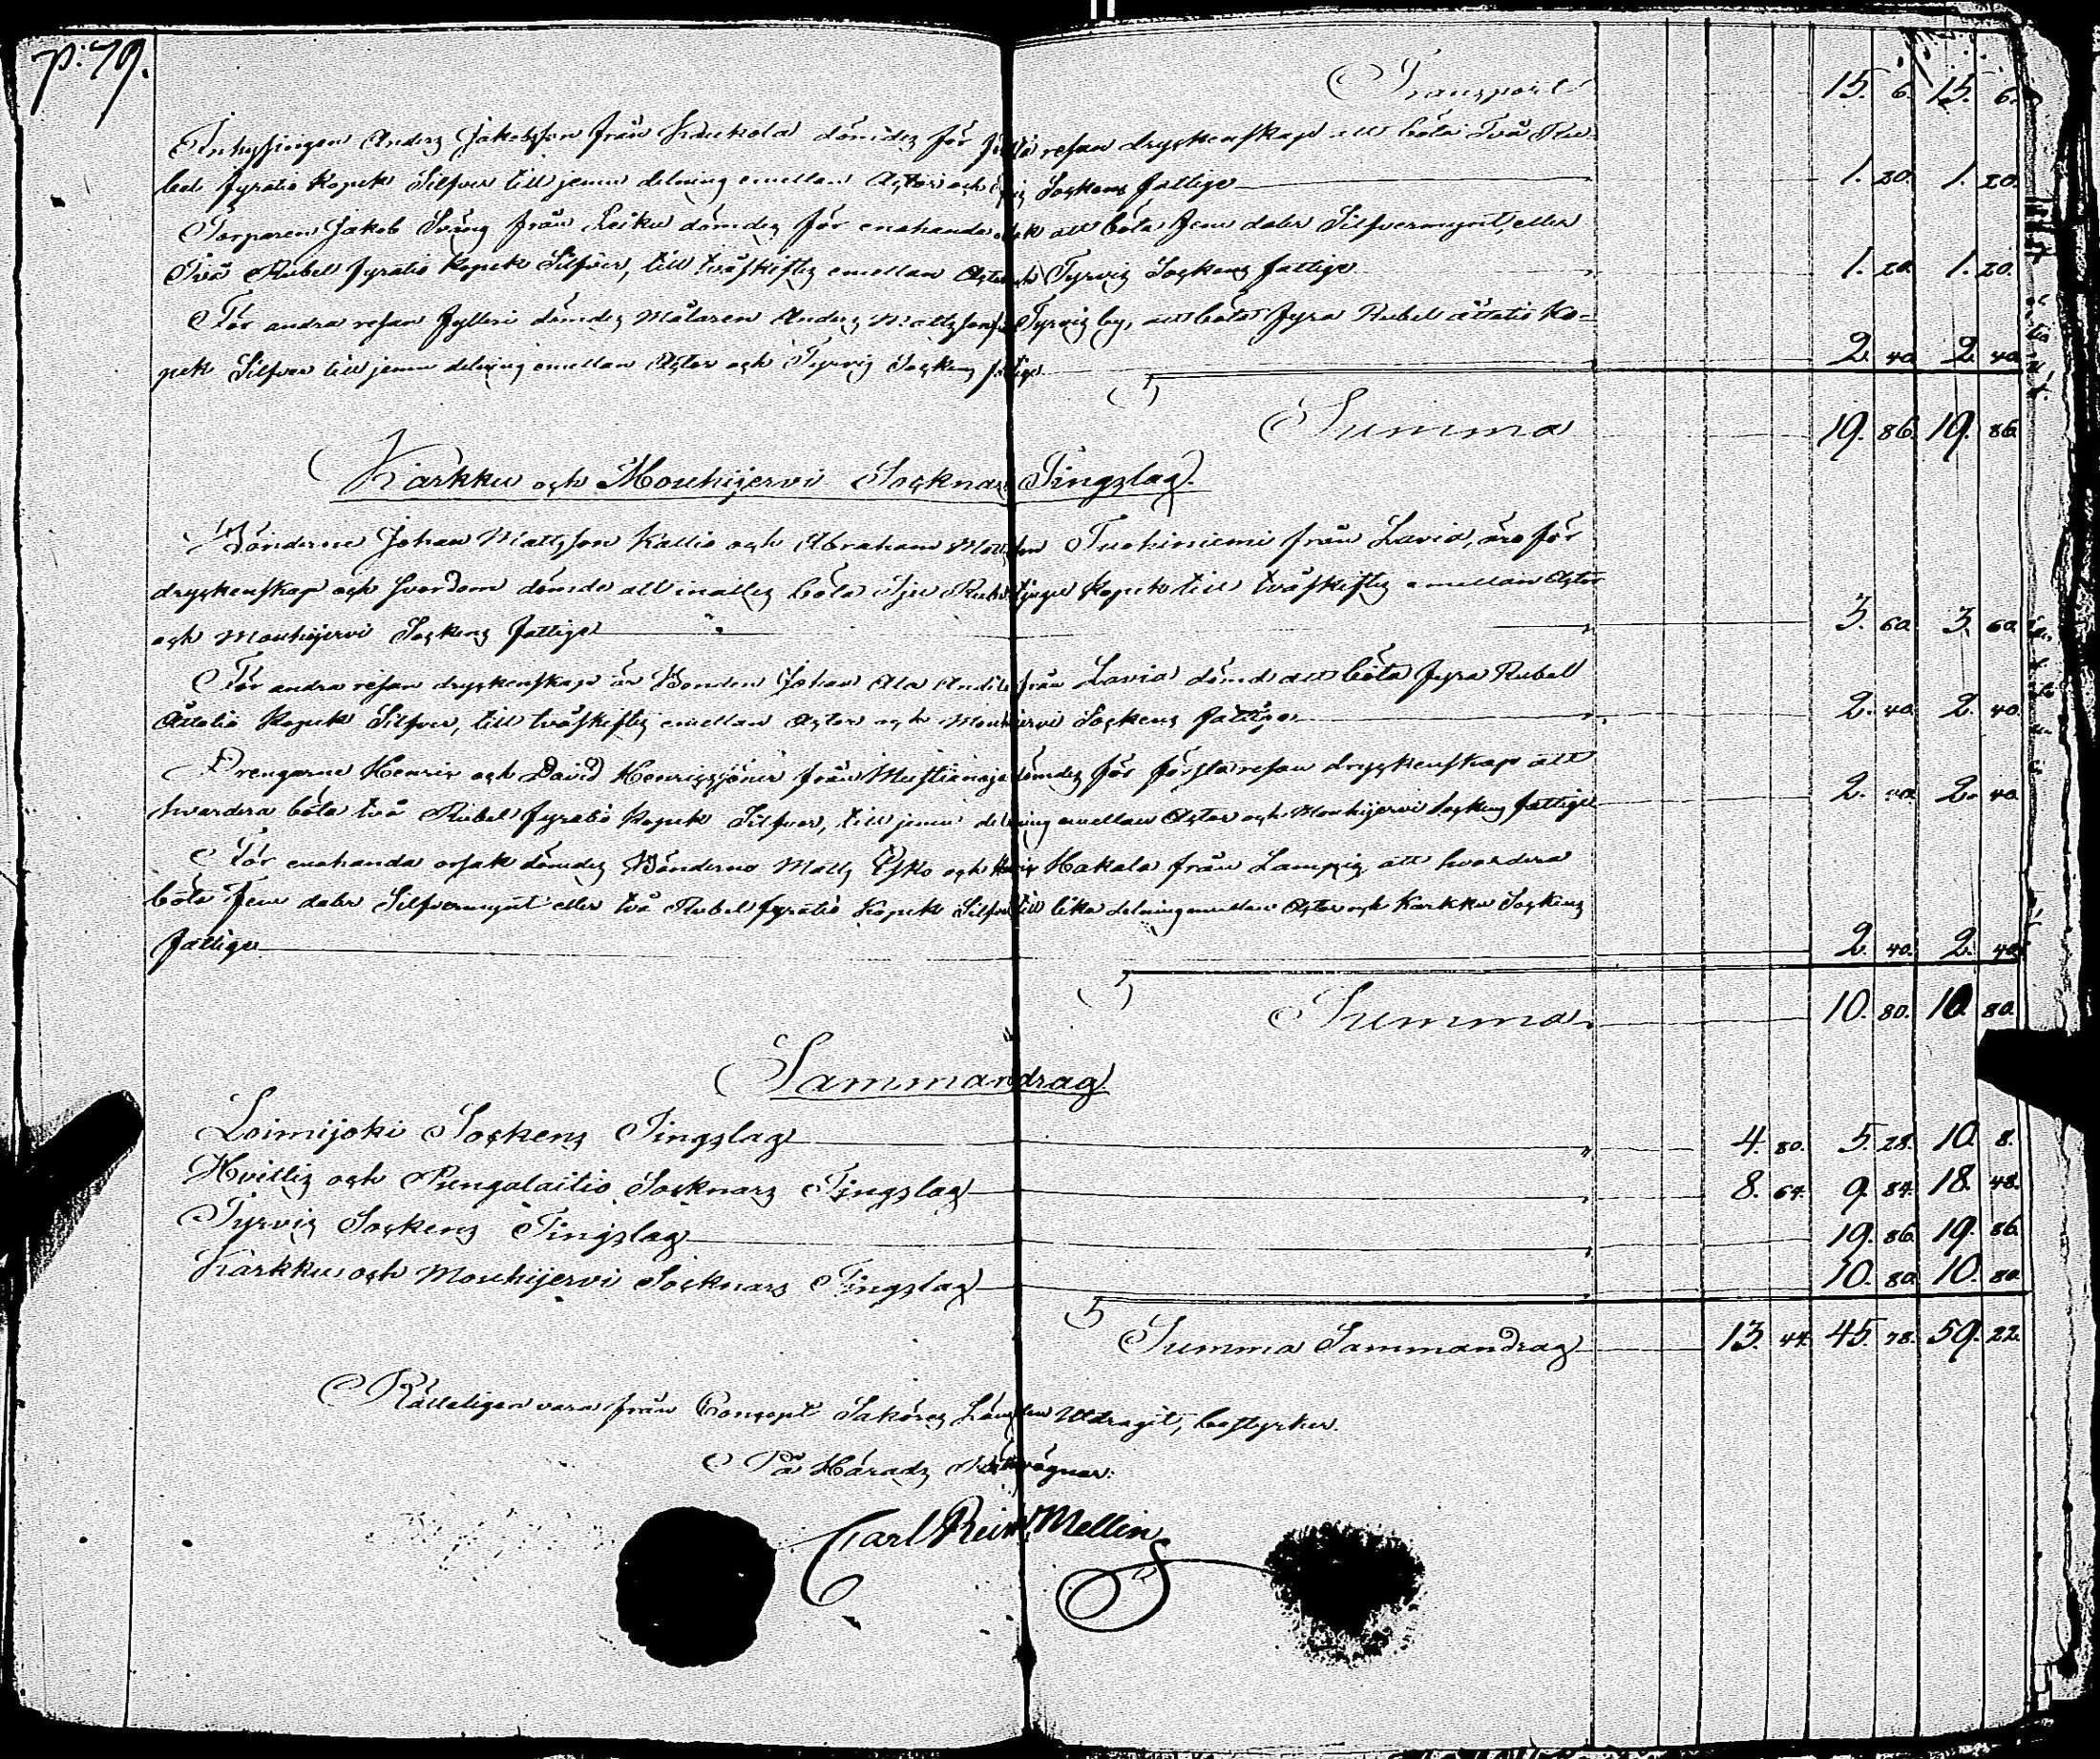 p. 79.
Transport 15. 6. 15. 6.
Inhysingen Anders Jakobsson från Kaukola dömdes för första resan dryckenskap att böta Två Ru-
bel fyratio Kopek Silfver till jemn delning emellan Actor och Sockens fattige 1. 20. 1. 20.
Torparen Jakob Sväng från Leiku dömdes för enahanda att böta fem daler Silfvermynt, eller
Två Rubel fyratio Kopek Silfver, till tvåskiftes emellan Actor och Tyrvis Sockens fattige 1. 20. 1. 20.
För andra resan fylleri dömdes Målaren Anders Mattsson från Tyrvis by, att böta fyra Rubel åttatio Ko-
pek Silfver till jemn delning emellan Actor och Tyrvis Sockens fattige 2. 40. 2. 40.
Summa 19. 86. 19. 86.
Karkku och Mouhijervi Socknars Tingslag.
Bönderne Johan Mattsson Kallio och Abraham Mattsson Tuokiniemi från Lavia, äro för
dryckenskap och svordom dömde att inalles böta Sju Rubel tjugu Kopek till tvåskiftes emellan Actor
och Mouhijervi Sockens fattige 3. 60. 3. 60.
För andra resan dryckenskap är Bonden Johan Ala Anttila från Lavia dömd att böta fyra Rubel
Åttatio Kopek Silfver, till tvåskiftes emellan Actor och Mouhijervi Sockens fattige 2. 40. 2. 40.
Drengarne Henric och David Henricssöner från Mustianoja dömdes för första resan dryckenskap att
hvardera böta två Rubel fyratio Kopek Silfver, till jemn delning emellan Actor och Mouhijervi Sockens fattige 2. 40. 2. 40.
För enahanda orsak dömdes Bönderne Matts Esko och Henric Hakala från Lampis att hvardera
böta fem daler Silfvermynt eller två Rubel fyratio Kopek Silfver till lika delning emellan Actor och Karkku Sockens
fattige 2. 40. 2. 40.
Summa 10. 80. 10. 80.
Sammandrag.
Loimijoki Sockens Tingslag 4. 80. 5. 28. 10. 8.
Hvittis och Pungalaitio Socknars Tingslag 8. 64. 9. 84. 18. 48.
Tyrvis Sockens Tingslag 19. 86. 19. 86.
Karkku och Mouhijervi Socknars Tingslag 10. 80. 10. 80.
Summa Sammandrag 13. 44. 45. 78. 59. 22.
Rätteligen vara från Concept Saköres Längden Utdragit, bestyrker.
På Härads Rättens vägnar:
Carl Reinh Mellin